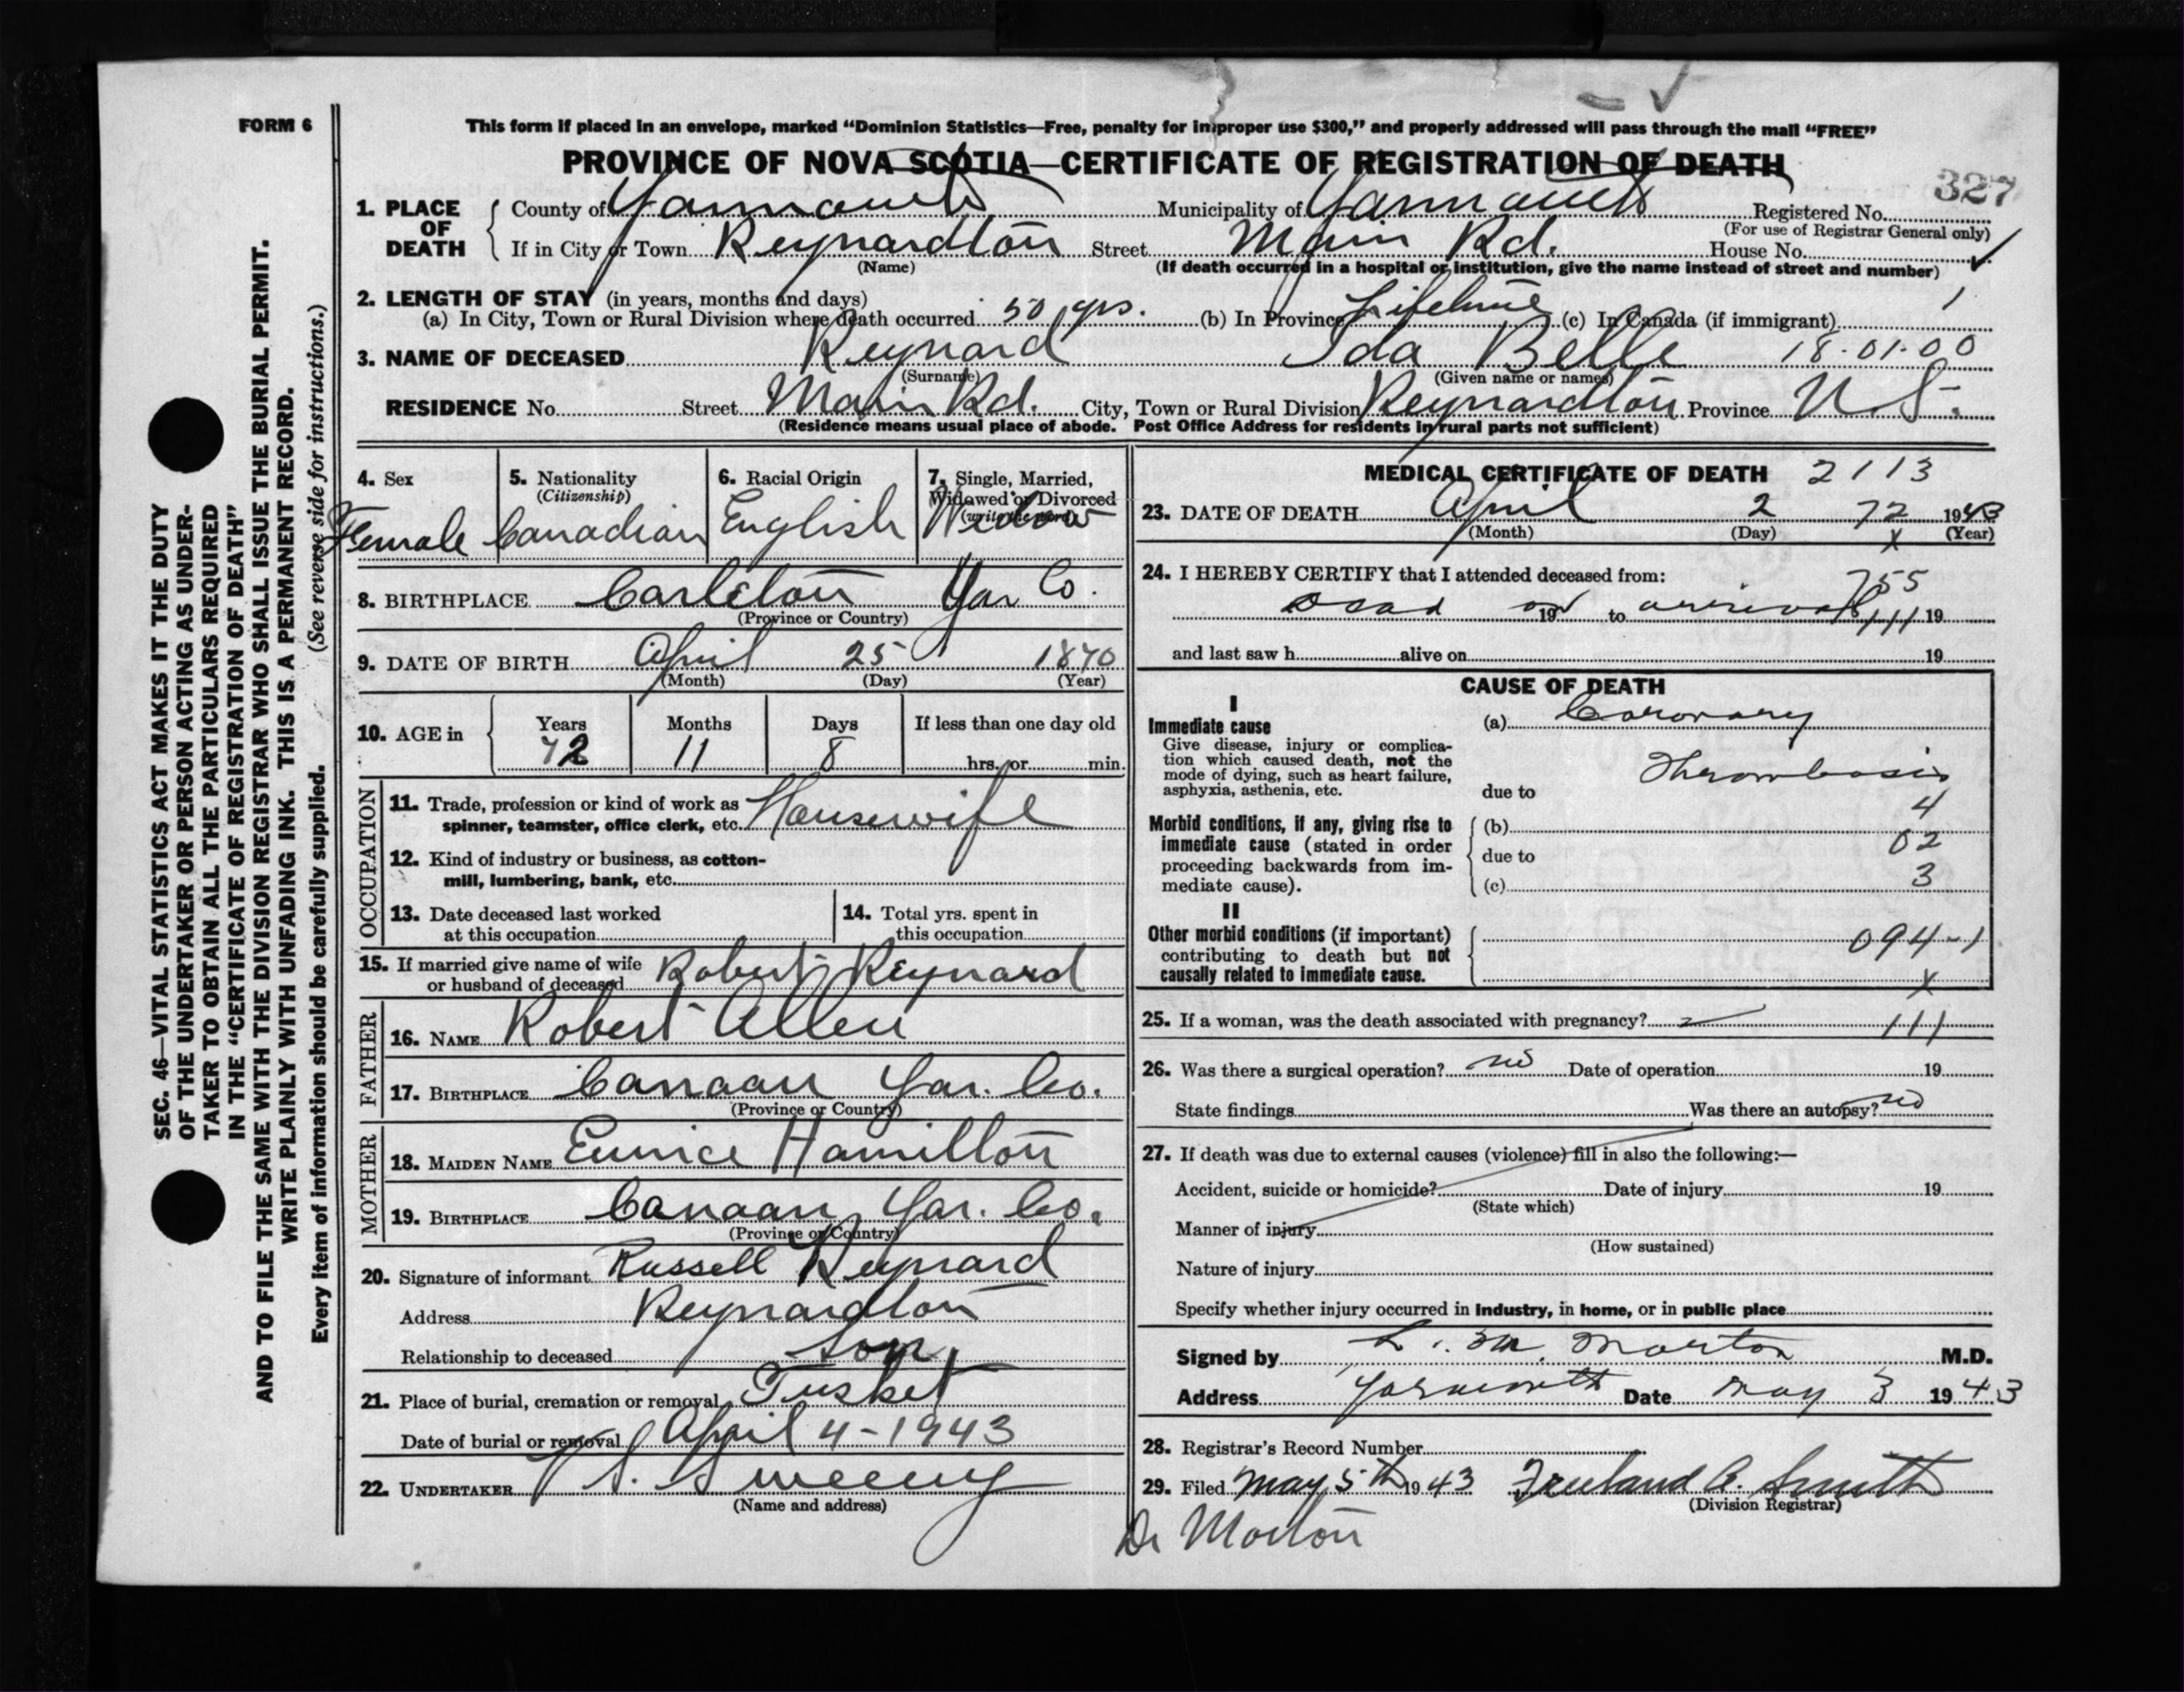 FORM 6
This form if placed in an envelope, marked “Dominion Statistics—Free, penalty for improper use $300,” and properly addressed will pass through the mail “FREE”
PROVINCE OF NOVA SCOTIA—CERTIFICATE OF REGISTRATION OF DEATH
327
1. PLACE OF DEATH { County of Yarmouth Municipality of Yarmouth Registered No.
(For use of Registrar General only)
If in City or Town Reynardton Street Main Rd. House No.
(Name) (If death occurred in a hospital or institution, give the name instead of street and number)
2. LENGTH OF STAY (in years, months and days)
(a) In City, Town or Rural Division where death occurred 50 yrs. (b) In Province Lifetime (c) In Canada (if immigrant) 1
3. NAME OF DECEASED Reynard Ida Belle 18-01-00
(Surname) (Given name or names)
RESIDENCE No. Street Main Rd. City, Town or Rural Division Reynardton Province N. S.
(Residence means usual place of abode. Post Office Address for residents in rural parts not sufficient)
SEC. 46—VITAL STATISTICS ACT MAKES IT THE DUTY
OF THE UNDERTAKER OR PERSON ACTING AS UNDER-
TAKER TO OBTAIN ALL THE PARTICULARS REQUIRED
IN THE “CERTIFICATE OF REGISTRATION OF DEATH”
AND TO FILE THE SAME WITH THE DIVISION REGISTRAR WHO SHALL ISSUE THE BURIAL PERMIT.
WRITE PLAINLY WITH UNFADING INK. THIS IS A PERMANENT RECORD.
Every item of information should be carefully supplied. (See reverse side for instructions.)
4. Sex
Female
5. Nationality
(Citizenship)
Canadian
6. Racial Origin
English
7. Single, Married,
Widowed or Divorced
(write the word)
Widow
8. BIRTHPLACE Carleton Yar Co.
(Province or Country)
9. DATE OF BIRTH April 25 1870
(Month) (Day) (Year)
10. AGE in { Years Months Days If less than one day old
72 11 8 hrs. or min.
OCCUPATION
11. Trade, profession or kind of work as
spinner, teamster, office clerk, etc. Housewife
12. Kind of industry or business, as cotton-
mill, lumbering, bank, etc.
13. Date deceased last worked
at this occupation
14. Total yrs. spent in
this occupation
15. If married give name of wife
or husband of deceased Robert Reynard
FATHER
16. NAME Robert Allen
17. BIRTHPLACE Canaan Yar. Co.
(Province or Country)
MOTHER
18. MAIDEN NAME Eunice Hamilton
19. BIRTHPLACE Canaan, Yar. Co.
(Province or Country)
20. Signature of informant Russell Reynard
Address Reynardton
Relationship to deceased Son
21. Place of burial, cremation or removal Tusket
Date of burial or removal April 4-1943
22. UNDERTAKER V. S. Sweeny
(Name and address)
MEDICAL CERTIFICATE OF DEATH 2113
23. DATE OF DEATH April 2 72 1943
(Month) (Day) x (Year)
24. I HEREBY CERTIFY that I attended deceased from: 755
dead on 19 to arrival 111 19
and last saw h alive on 19
CAUSE OF DEATH
I
Immediate cause
Give disease, injury or complica-
tion which caused death, not the
mode of dying, such as heart failure,
asphyxia, asthenia, etc.
(a) Coronary
Thrombosis
due to
4
Morbid conditions, if any, giving rise to
immediate cause (stated in order
proceeding backwards from im-
mediate cause).
(b)
02
due to
3
(c)
II
Other morbid conditions (if important)
contributing to death but not
causally related to immediate cause.
094-1
x
25. If a woman, was the death associated with pregnancy? 111
26. Was there a surgical operation? no Date of operation 19
State findings Was there an autopsy? no
27. If death was due to external causes (violence) fill in also the following:—
Accident, suicide or homicide? Date of injury 19
(State which)
Manner of injury
(How sustained)
Nature of injury
Specify whether injury occurred in industry, in home, or in public place
Signed by L. M. Morton M.D.
Address Yarmouth Date May 3 1943
28. Registrar's Record Number
29. Filed May 5th 1943 Freeland A. Smith
(Division Registrar)
Dr Morton